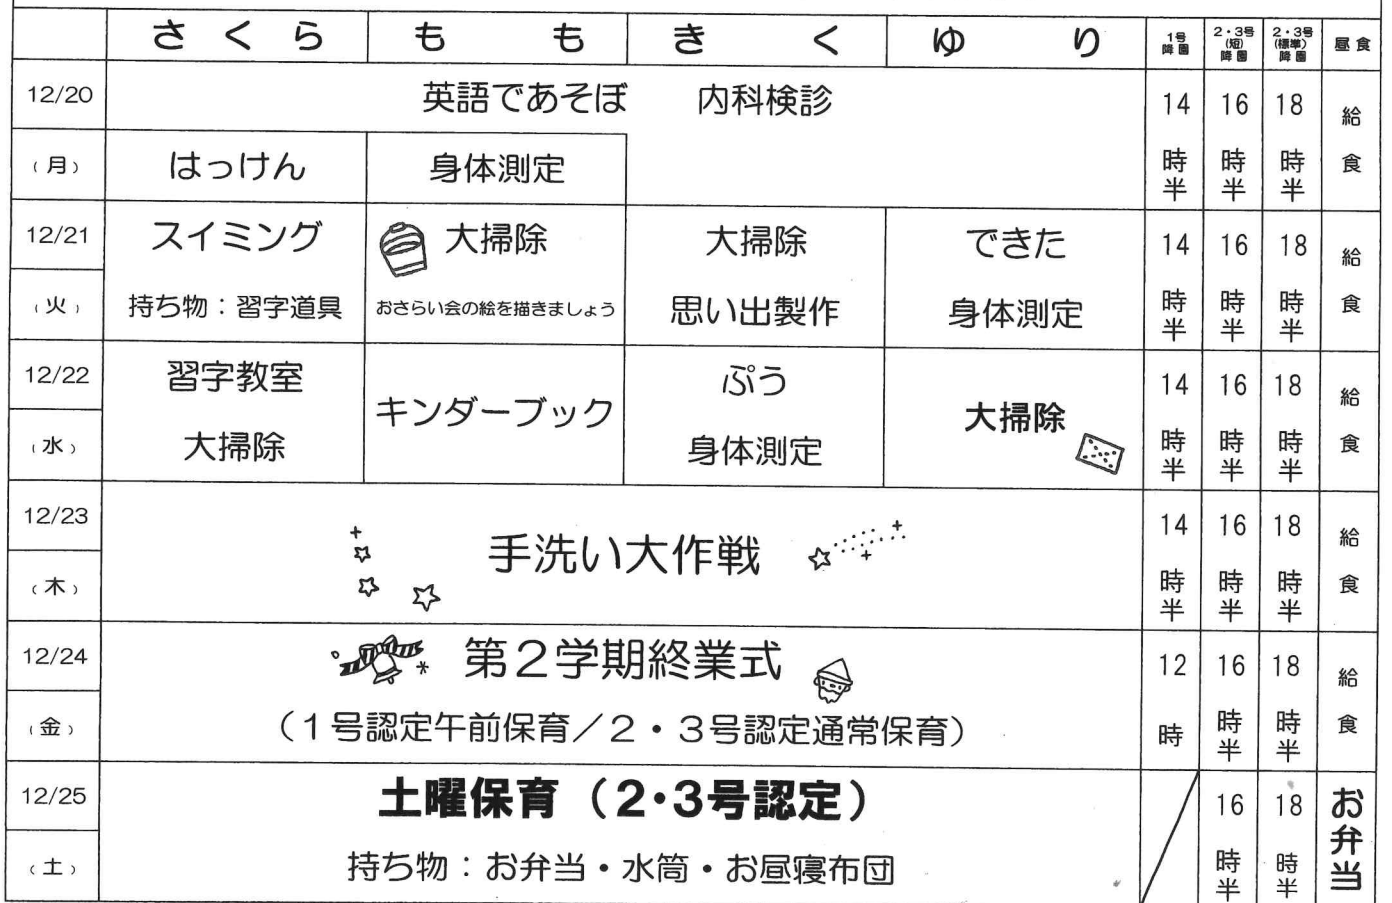 さくら もも きく ゆり 1号降園 2・3号(短)降園 2・3号(標準)降園 昼食
12/20 (月)
英語であそぼ 内科検診
はっけん 身体測定
14時半 16時半 18時半 給食
12/21 (火)
スイミング 大掃除 大掃除 できた
持ち物：習字道具 おさらい会の絵を描きましょう 思い出製作 身体測定
14時半 16時半 18時半 給食
12/22 (水)
習字教室 キンダーブック ぷう 大掃除
大掃除 身体測定
14時半 16時半 18時半 給食
12/23 (木)
手洗い大作戦
14時半 16時半 18時半 給食
12/24 (金)
第２学期終業式
（１号認定午前保育／２・３号認定通常保育）
12時 16時半 18時半 給食
12/25 (土)
土曜保育（2・3号認定）
持ち物：お弁当・水筒・お昼寝布団
16時半 18時半 お弁当